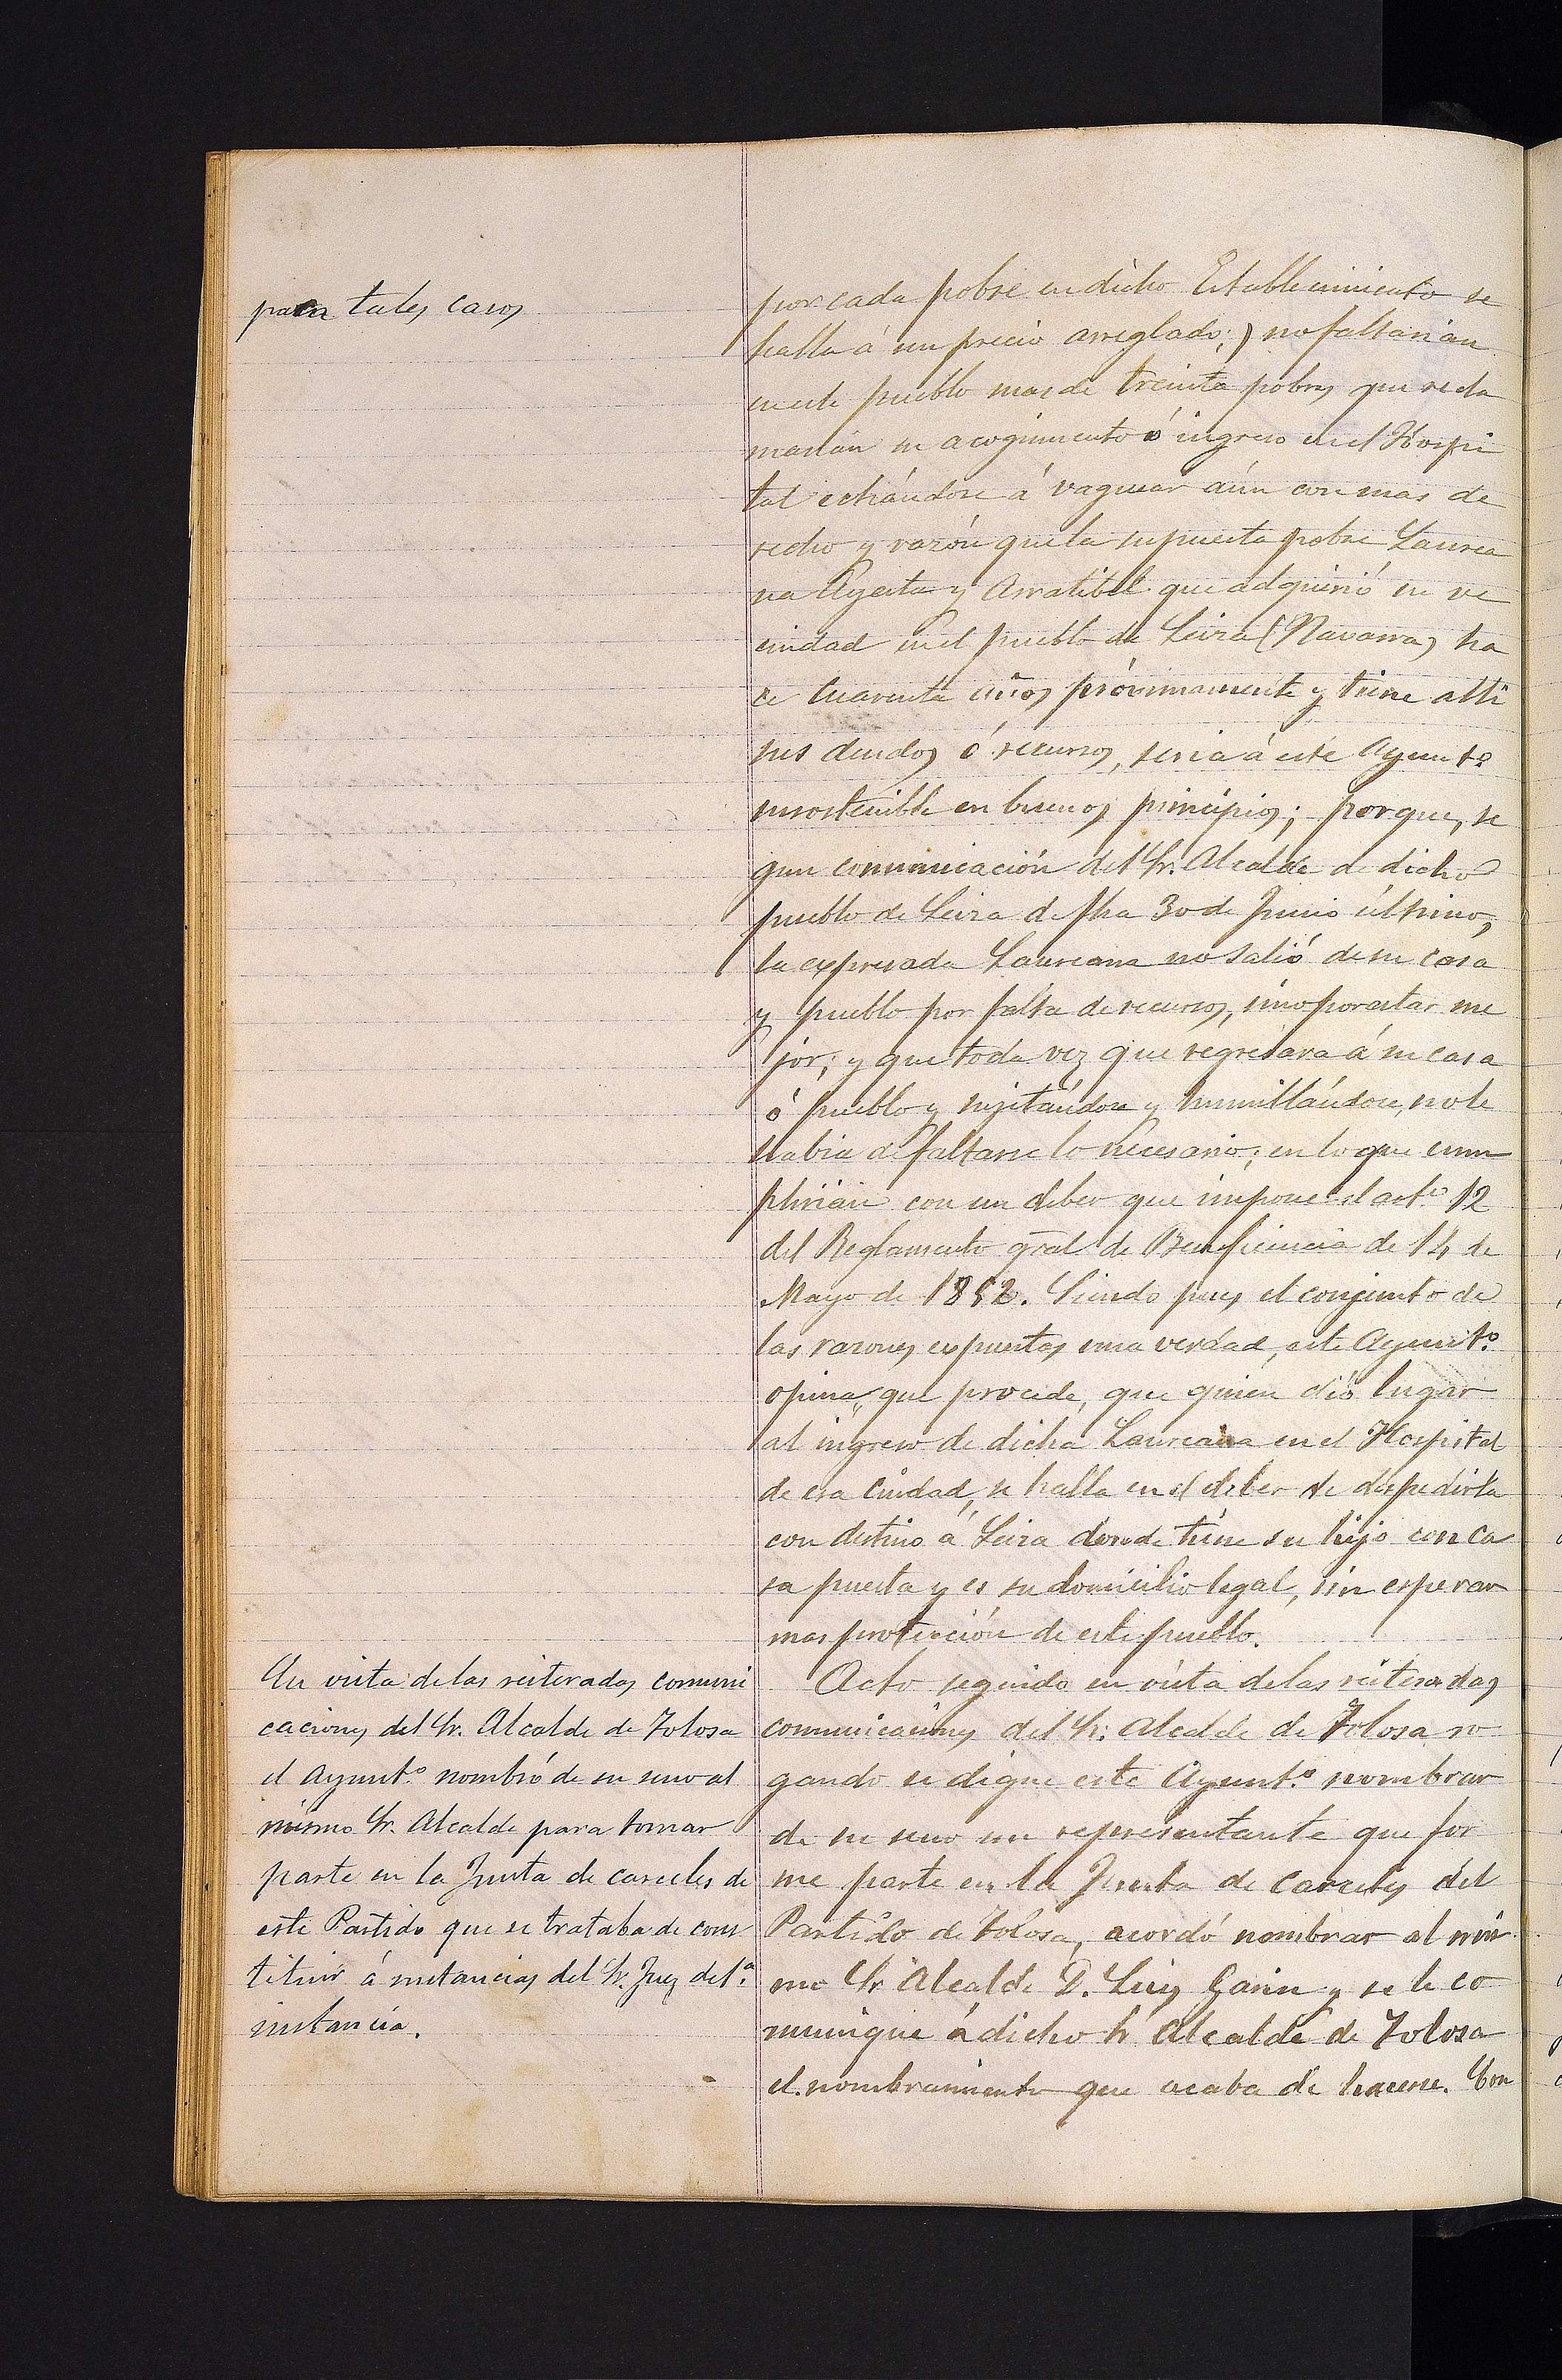 para tales casos
por cada pobre en dicho Establecimiento se
halla á un precio arreglado;) no faltarian
en este pueblo mas de treinta pobres que recla
marian su acogimiento ó ingreso en el Hospi
tal echándose á vaguear aún con mas de
recho y razón que la supuesta pobre Laurea
na Ayerta y Arratibel que adquirió su ve
cindad en el pueblo de Leiza (Navarra) ha
ce cuarenta años próximamente y tiene alli
sus deudos ó recursos, seria á este Ayunt.º
insostenible en buenos principios; porque, se
gun comunicación del Sr. Alcalde de dicho
pueblo de Leiza de fha 30 de Junio último,
la expresada Laureana no salió de su casa
y pueblo por falta de recursos, sino por estar me
jor; y que toda vez que regresara á su casa
ó pueblo y sujetándose y humillándose, no le
habia de faltarse lo necesario; en lo que cum
plirian con un deber que impone el art.º 12
del Reglamento gral de Beneficencia de 14 de
Mayo de 1852. Siendo pues el conjunto de
las razones expuestas una verdad, este Ayunt.º
opina, que procede, que quien dió lugar
al ingreso de dicha Laureana en el Hospital
de esa Ciudad, se halla en el deber de despedirla
con destino á Leiza donde tiene su hijo con ca
sa puesta y es su domicilio legal, sin esperar
mas protección de este pueblo.
En vista de las reiteradas comuni
caciones del Sr. Alcalde de Tolosa
el Ayunt.º nombró de su seno al
mismo Sr. Alcalde para tomar
parte en la Junta de carceles de
este Partido que se trataba de cons
tituir á instancias del Sr. Juez de 1.ª
instancia.
Acto seguido en vista de las reiteradas
comunicaciones del Sr. Alcalde de Tolosa ro
gando se digne este Ayunt.º nombrar
de su seno un representante que for
me parte en la Junta de Carceles del
Partido de Tolosa, acordó nombrar al mis
mo Sr Alcalde D. Luis Garin y se le co
munique á dicho Sr Alcalde de Tolosa
el nombramiento que acaba de hacerse. Con